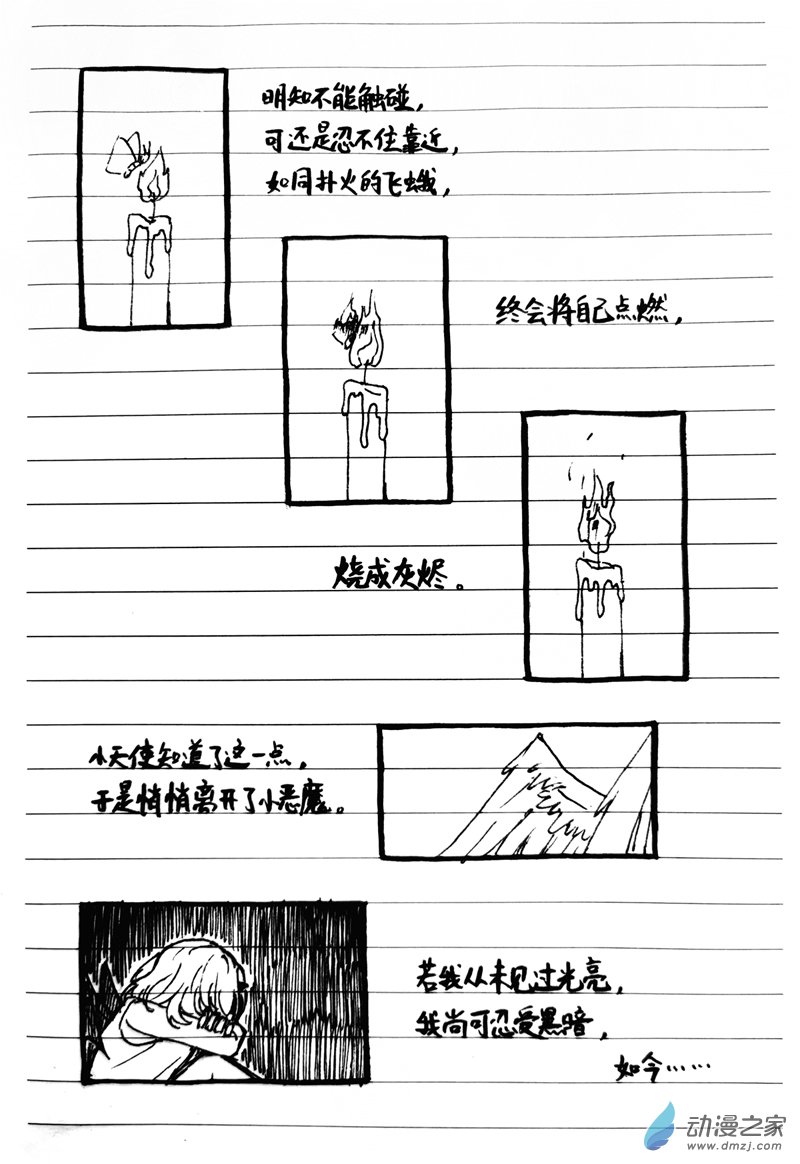 明知不能触碰，
可还是忍不住靠近，
如同扑火的飞蛾，
终会将自己点燃，
烧成灰烬。
小天使知道了这一点，
于是悄悄离开了小恶魔。
若我从未见过光亮，
我尚可忍受黑暗，
如今……
动漫之家
www.dmzj.com